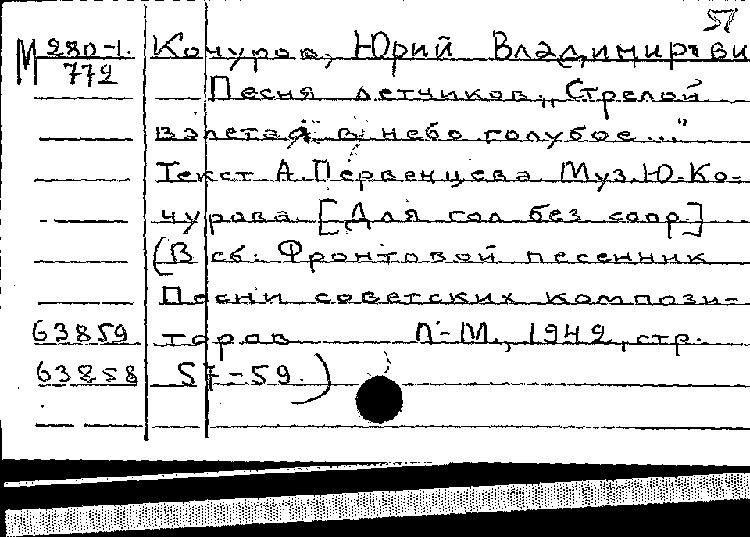 51
М 280-1. Кочуров, Юрий Владимирови
772
Песня летчиков „Стрелой
взлетая в небо голубое..."
Текст А.Первенцева Муз.Ю.Ко-
чурова [Для гол без сопр]
(В сб: Фронтовой песенник
Песни советских компози-
63859 торов Л-М., 1942, стр.
63858 57-59.)